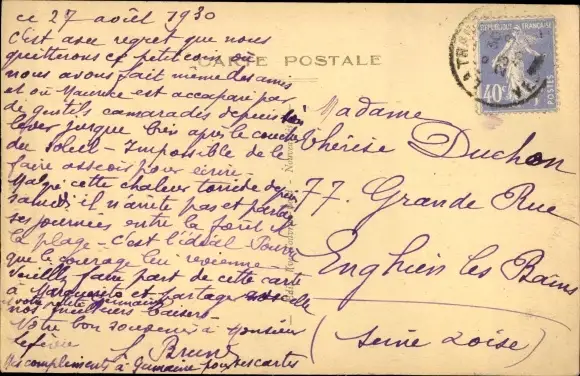 ce 27 août 1930
C'est avec regret que nous
quitterons ce petit coin où
nous avons fait même des amis
et où Maurice est accaparé par
de gentils camarades depuis son
lever jusque très après le coucher
du soleil - Impossible de le
faire asseoir pour écrire -
Malgré cette chaleur torride depuis
samedi il n'arrête pas et partage
ses journées entre la forêt et
la plage - C'est l'idéal. Pourvu
que le courage lui revienne -
Veuillez faire part de cette carte
à Marguerite et partager avec elle
et votre petite Germaine
nos meilleurs baisers
Votre bon souvenir à Monsieur
S. Brun
Mes compliments à Germaine pour ses cartes
CARTE POSTALE
REPUBLIQUE FRANÇAISE
40c
POSTES
Madame
Thérèse Duchon
77. Grande Rue
Enghien les Bains
(Seine & Oise)